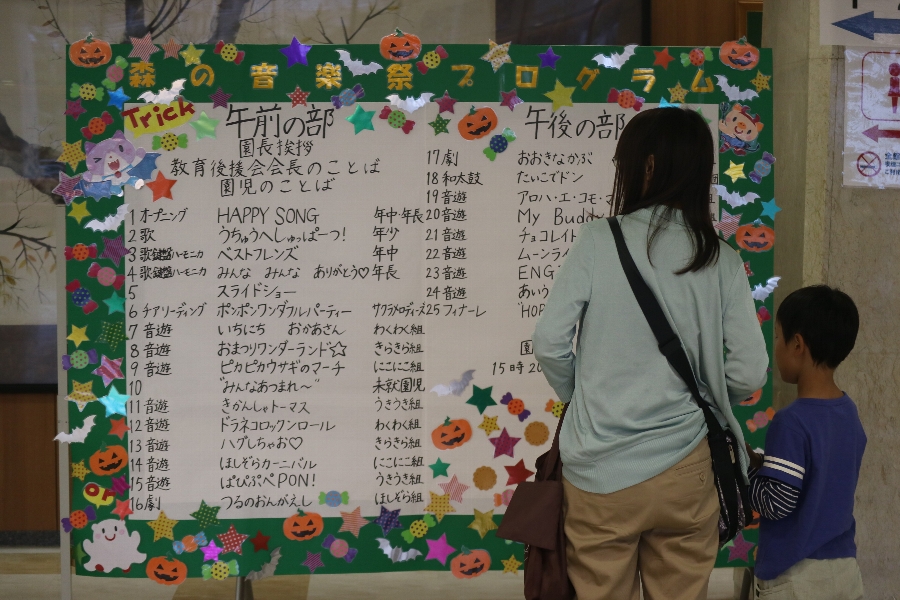 森の音楽祭プログラム
Trick
or
午前の部
園長挨拶
教育後援会会長のことば
園児のことば
1 オープニング HAPPY SONG 年中・年長
2 歌 うちゅうへしゅっぱーつ! 年少
3 歌・鍵盤ハーモニカ ベストフレンズ 年中
4 歌・鍵盤ハーモニカ みんな みんな ありがとう♡ 年長
5 スライドショー
6 チアリーディング ポンポンワンダフルパーティー サクラメロディーズ
7 音遊 いちにち おかあさん わくわく組
8 音遊 おまつりワンダーランド☆ きらきら組
9 音遊 ピカピカウサギのマーチ にこにこ組
10 "みんなあつまれ〜" 未就園児
11 音遊 きかんしゃトーマス うきうき組
12 音遊 ドラネコロックンロール わくわく組
13 音遊 ハブしちゃお♡ きらきら組
14 音遊 ほしぞらカーニバル にこにこ組
15 音遊 ぱぴぷぺPON! うきうき組
16 劇 つるのおんがえし ほしぞら組
午後の部
17 劇 おおきなかぶ
18 和太鼓 たいこでドン
19 音遊 アロハ・エ・コモ・マ
20 音遊 My Buddy
21 音遊 チョコレイト
22 音遊 ムーンライ
23 音遊 ENG
24 音遊 あいう
25 フィナーレ "HOP
園
15時20